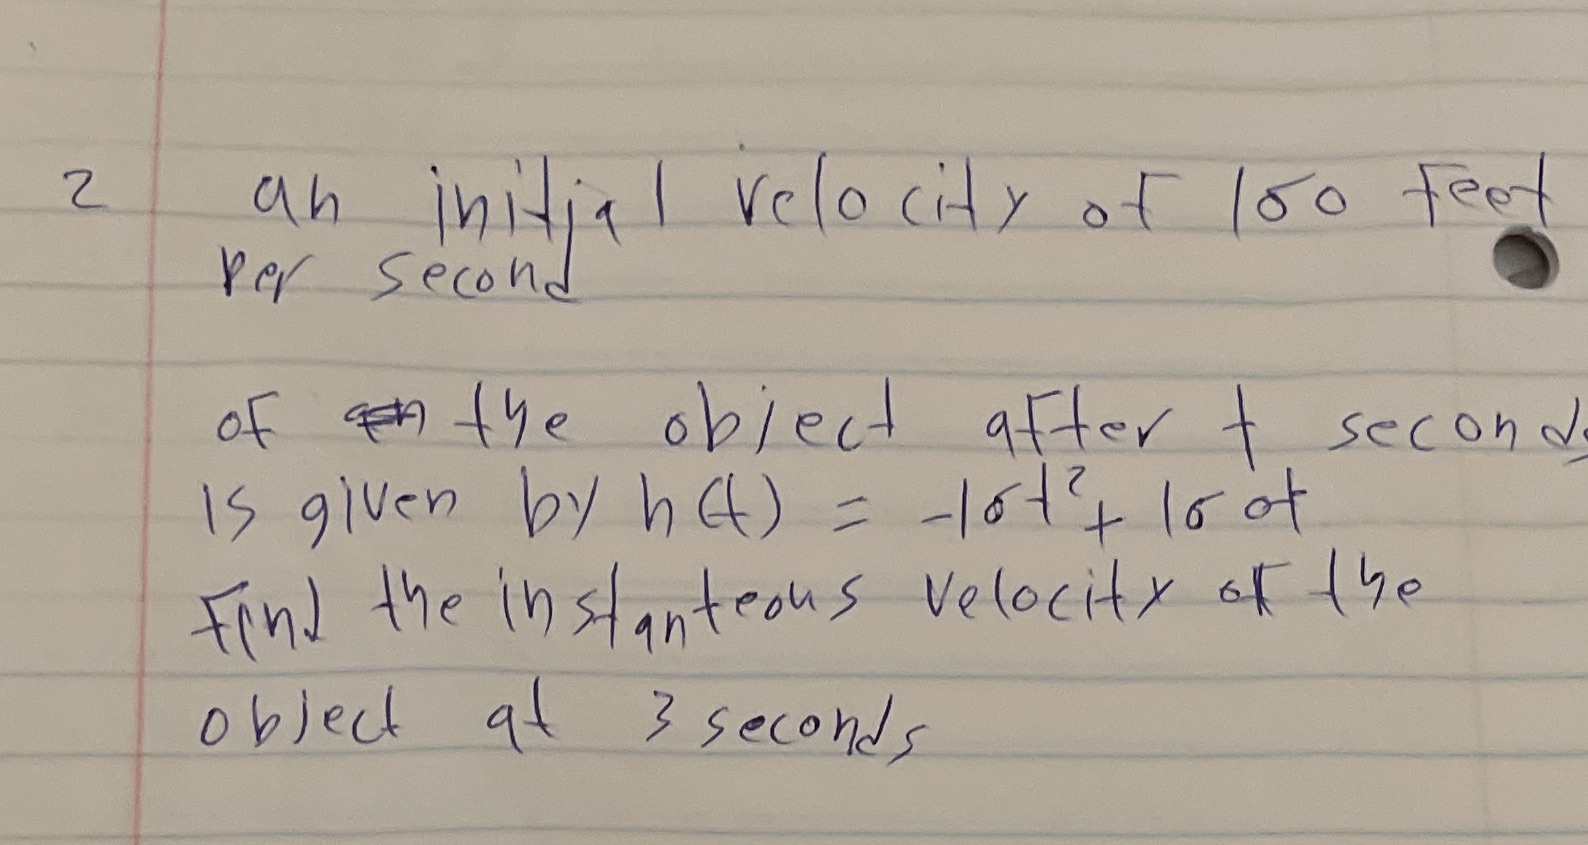 2 an initial velocity of 160 feet
per second
of the object after t seconds
is given by h(t) = -16t² + 160t
Find the instanteous velocity of the
object at 3 seconds